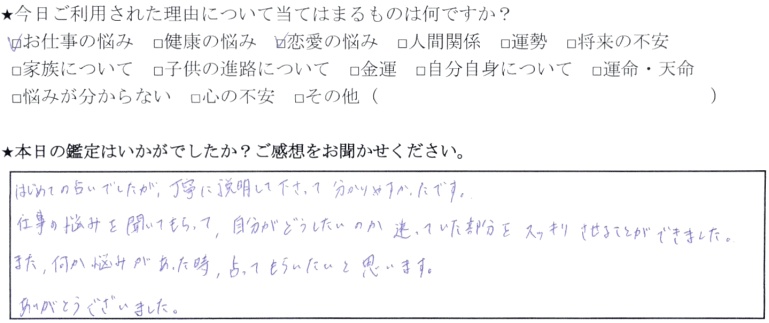 ★今日ご利用された理由について当てはまるものは何ですか？
☑お仕事の悩み □健康の悩み ☑恋愛の悩み □人間関係 □運勢 □将来の不安
□家族について □子供の進路について □金運 □自分自身について □運命・天命
□悩みが分からない □心の不安 □その他（ ）
★本日の鑑定はいかがでしたか？ご感想をお聞かせください。
はじめての占いでしたが、丁寧に説明して下さって分かりやすかったです。
仕事の悩みを聞いてもらって、自分がどうしたいのか迷っていた部分をスッキリさせることができました。
また、何か悩みがあった時、占ってもらいたいと思います。
ありがとうございました。